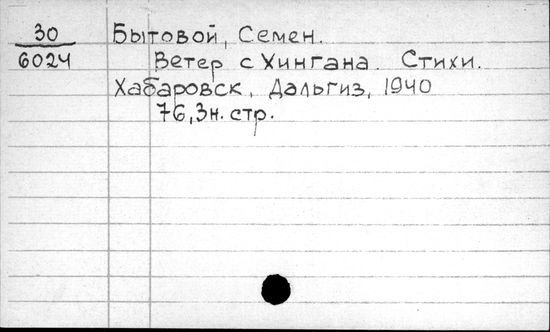 30
6024
Бытовой, Семен.
Ветер с Хингана. Стихи.
Хабаровск, Дальгиз, 1940
76,3н. стр.